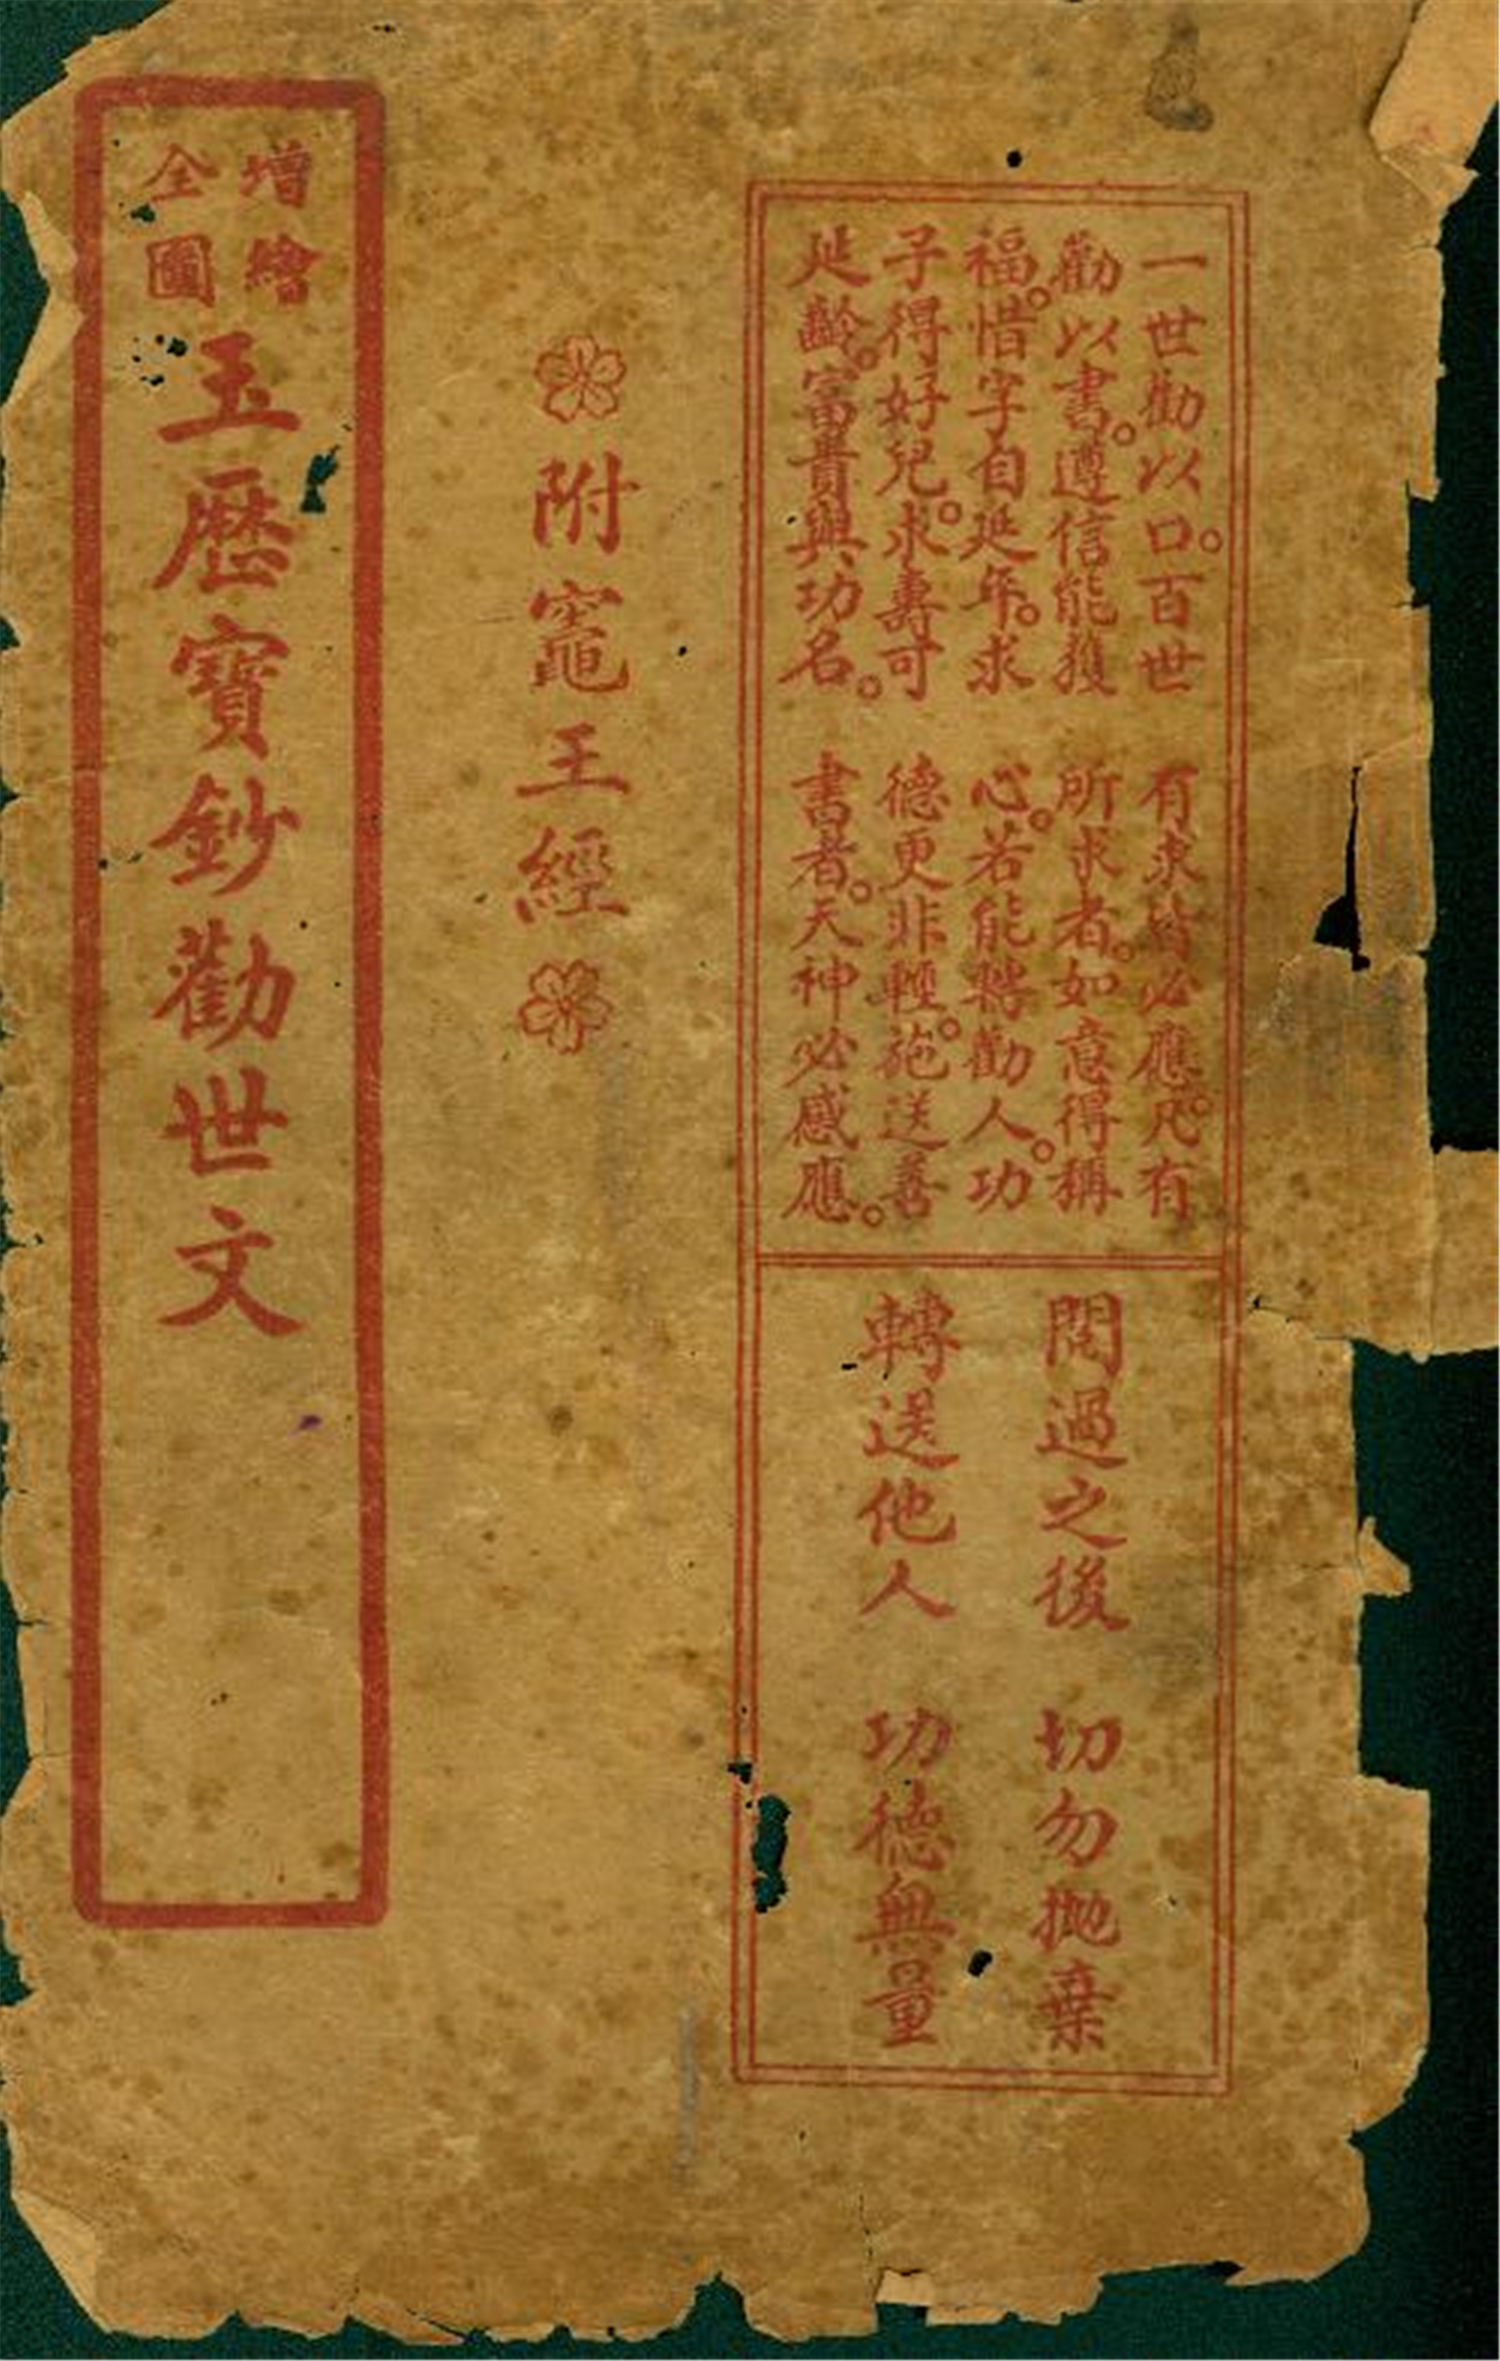 一世勸以口。百世
勸以書。遵信能獲
福。惜字自延年。求
子得好兒。求壽可
延齡。富貴與功名。
有求皆必應。凡有
所求者。如意得稱
心。若能轉勸人。功
德更非輕。施送善
書者。天神必感應。
閱過之後 切勿拋棄
轉送他人 功德無量
附竈王經
增繪
全圖
玉歷寶鈔勸世文